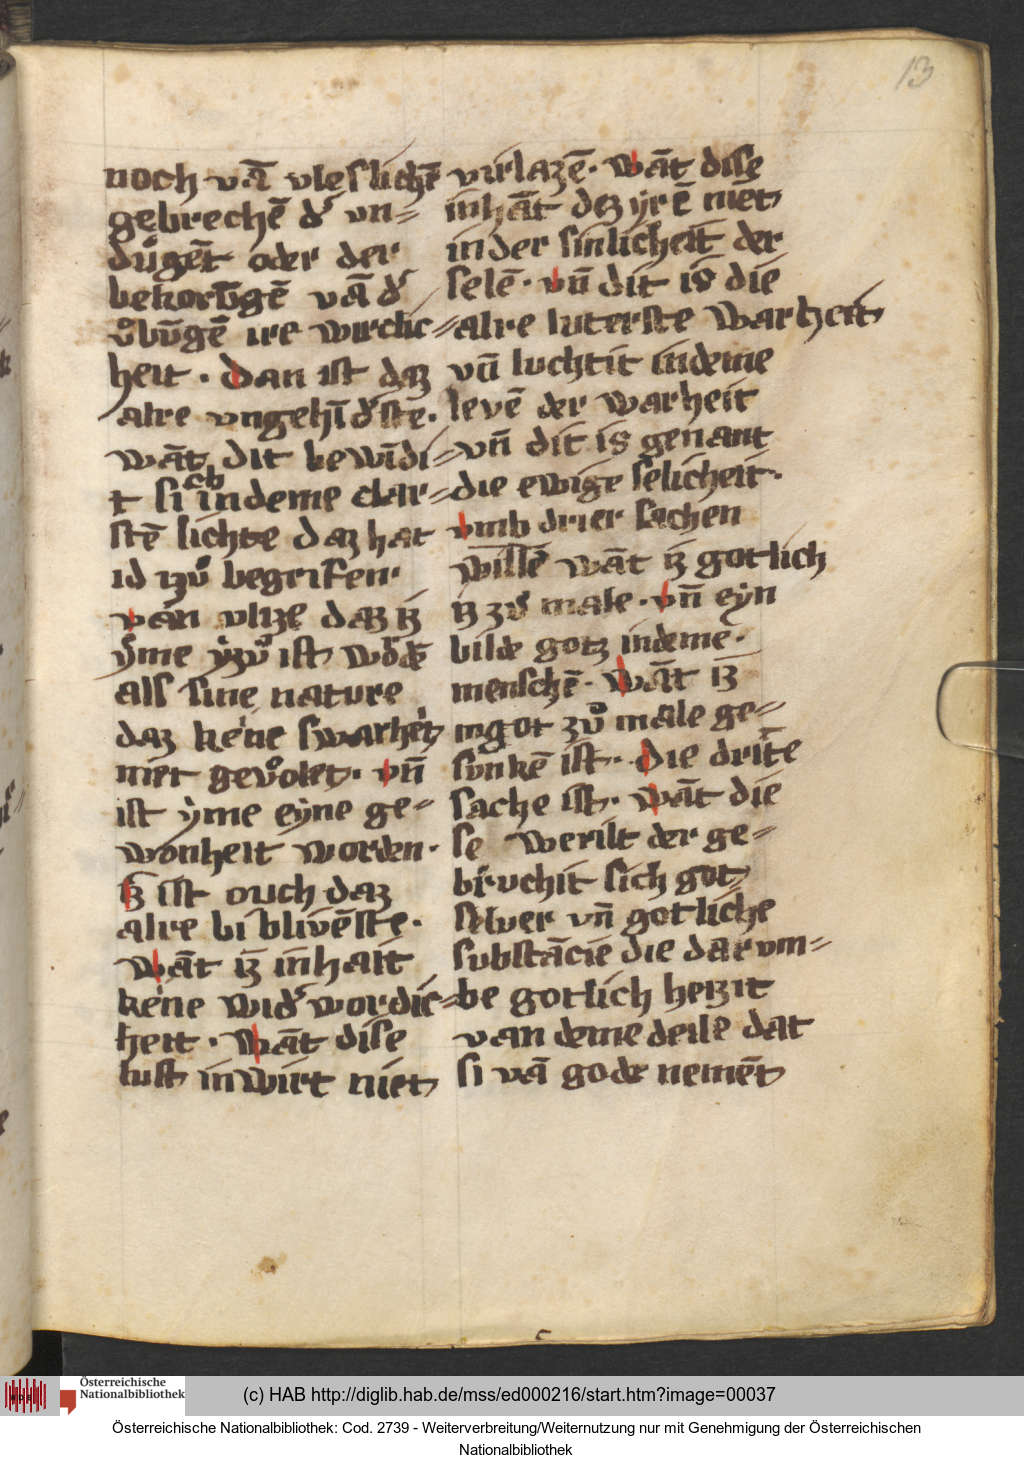 13
noch vā vleslichē
gebrechē dʼ vn=
du̍gēt oder der
bekorūgē vā dʼ
vͦbūgē ire wirclic=
heit · Dan ist daz
alre vngehīdʼste ·
wāt dit bewīdi=
t sich in deme clar=
stē lichte daz hat
id zzvͦ begrifen ·
van vlize daz iz
yme zzvͦ ist wordē
als sine nature
daz keine swarheit
niet gevͦolet · vn̄
ist yme eyne ge=
wonheit worden ·
iz ist ouch daz
alre bi blivēste ·
Wāt iz inhalt
keine widʼ wordic=
heit · Wāt dise
lust inwirt niet
virlazē · Wāt dise
inhāt dez yrē niet
in der sinlicheit der
selē · vn̄ dit is die
alre luterste warheit
vn̄ luchtit indeme
levē der warheit
vn̄ dit is genant
die ewige selicheit ·
vmb drier sachen
willē wāt iz gotlich
iz zvͦ male · vn̄ eyn
bilde gotz indeme ·
menschē · Wāt iz
ingot zvͦ male ge=
sunkē ist · Die drite
sache ist · Wāt die
se werilt der ge=
bruchit sich got
selver vn̄ gotliche
substācie die dar vm=
be gotlich heizit
van deme deile dat
si vā gode nemēt
Österreichische
Nationalbibliothek
(c) HAB http://diglib.hab.de/mss/ed000216/start.htm?image=00037
Österreichische Nationalbibliothek: Cod. 2739 - Weiterverbreitung/Weiternutzung nur mit Genehmigung der Österreichischen
Nationalbibliothek